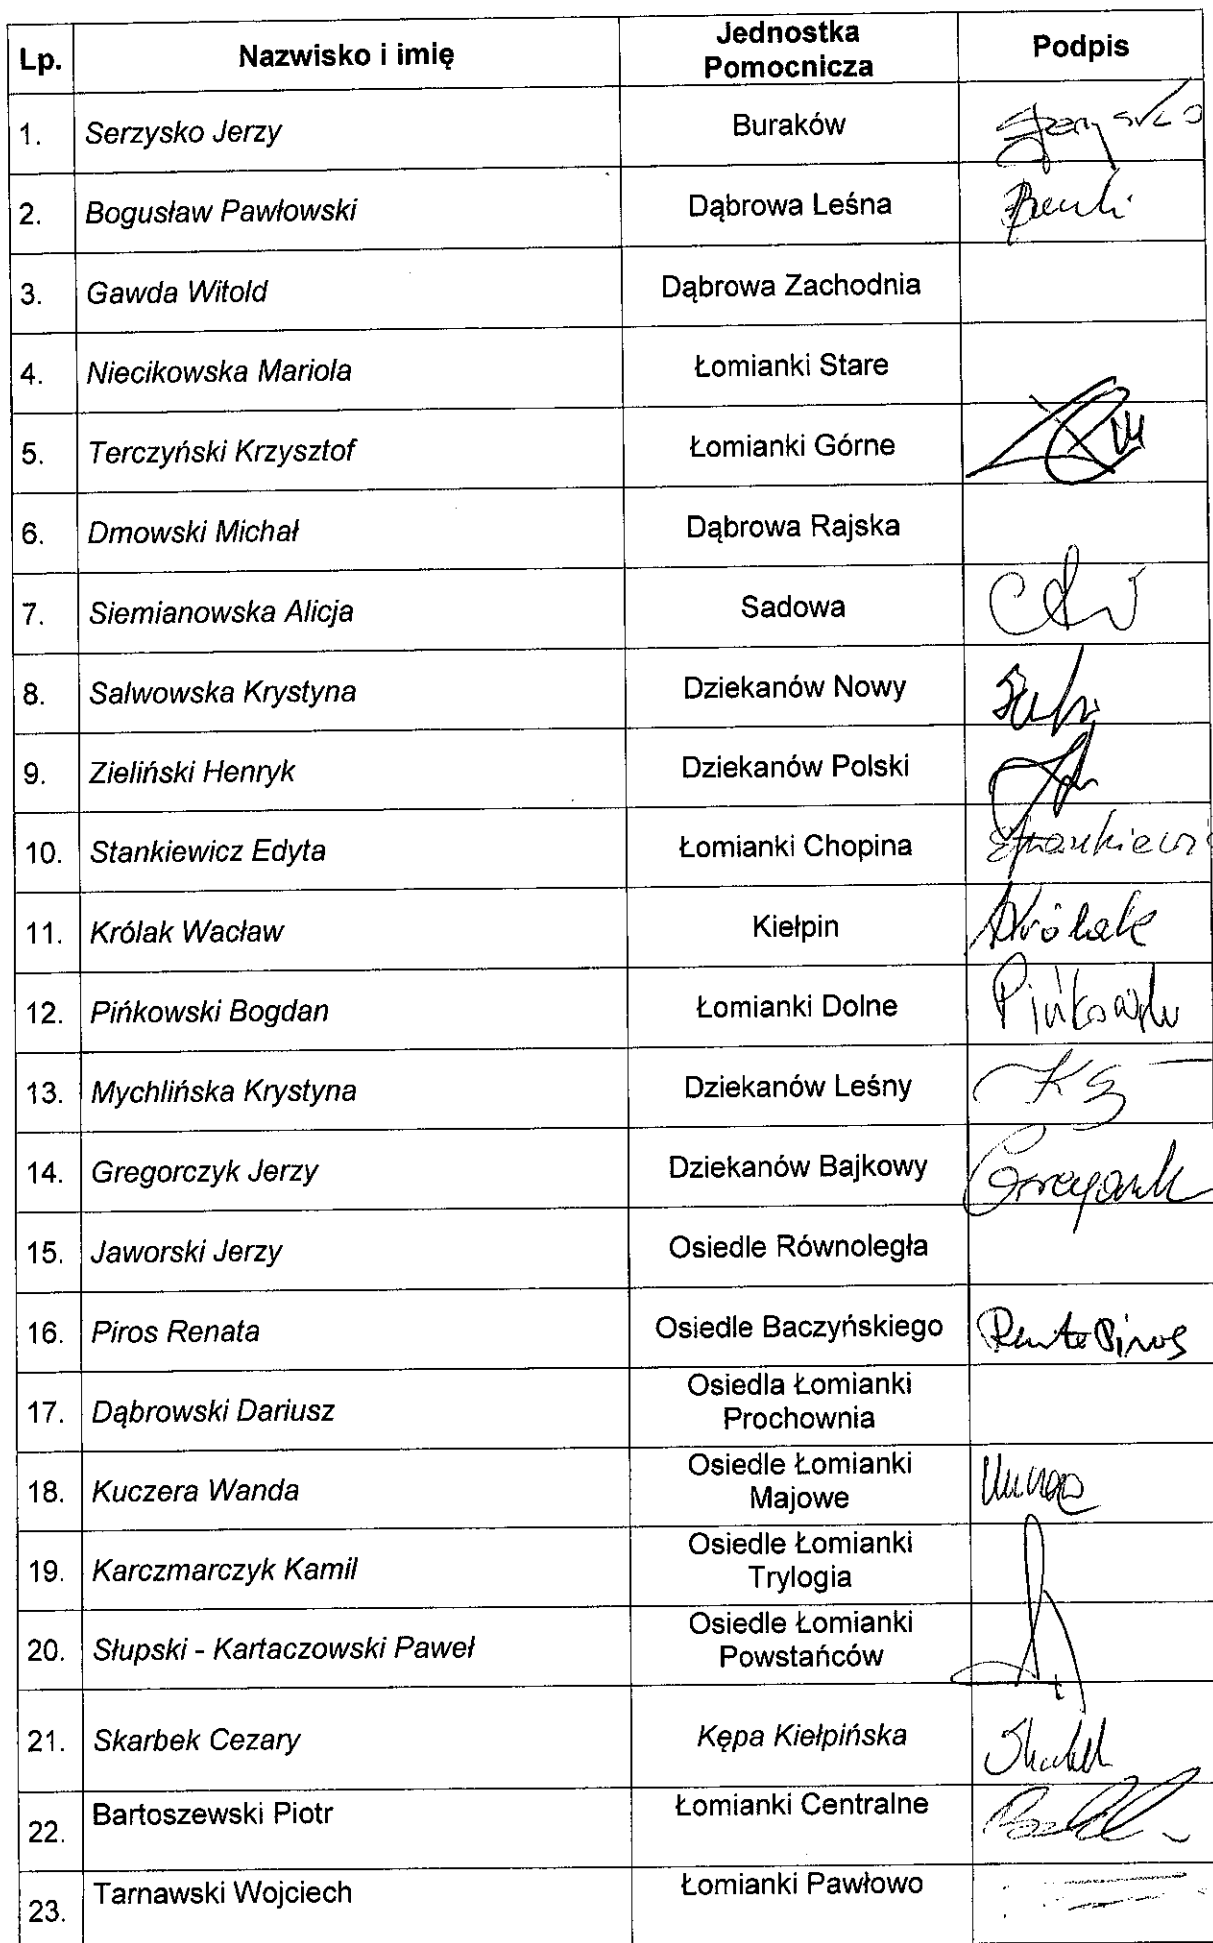 Lp. Nazwisko i imię Jednostka Pomocnicza Podpis
1. Serzysko Jerzy Buraków
2. Bogusław Pawłowski Dąbrowa Leśna
3. Gawda Witold Dąbrowa Zachodnia
4. Niecikowska Mariola Łomianki Stare
5. Terczyński Krzysztof Łomianki Górne
6. Dmowski Michał Dąbrowa Rajska
7. Siemianowska Alicja Sadowa
8. Salwowska Krystyna Dziekanów Nowy
9. Zieliński Henryk Dziekanów Polski
10. Stankiewicz Edyta Łomianki Chopina
11. Królak Wacław Kiełpin Królak
12. Pińkowski Bogdan Łomianki Dolne
13. Mychlińska Krystyna Dziekanów Leśny
14. Gregorczyk Jerzy Dziekanów Bajkowy
15. Jaworski Jerzy Osiedle Równoległa
16. Piros Renata Osiedle Baczyńskiego Renata Piros
17. Dąbrowski Dariusz Osiedla Łomianki Prochownia
18. Kuczera Wanda Osiedle Łomianki Majowe
19. Karczmarczyk Kamil Osiedle Łomianki Trylogia
20. Słupski - Kartaczowski Paweł Osiedle Łomianki Powstańców
21. Skarbek Cezary Kępa Kiełpińska
22. Bartoszewski Piotr Łomianki Centralne
23. Tarnawski Wojciech Łomianki Pawłowo